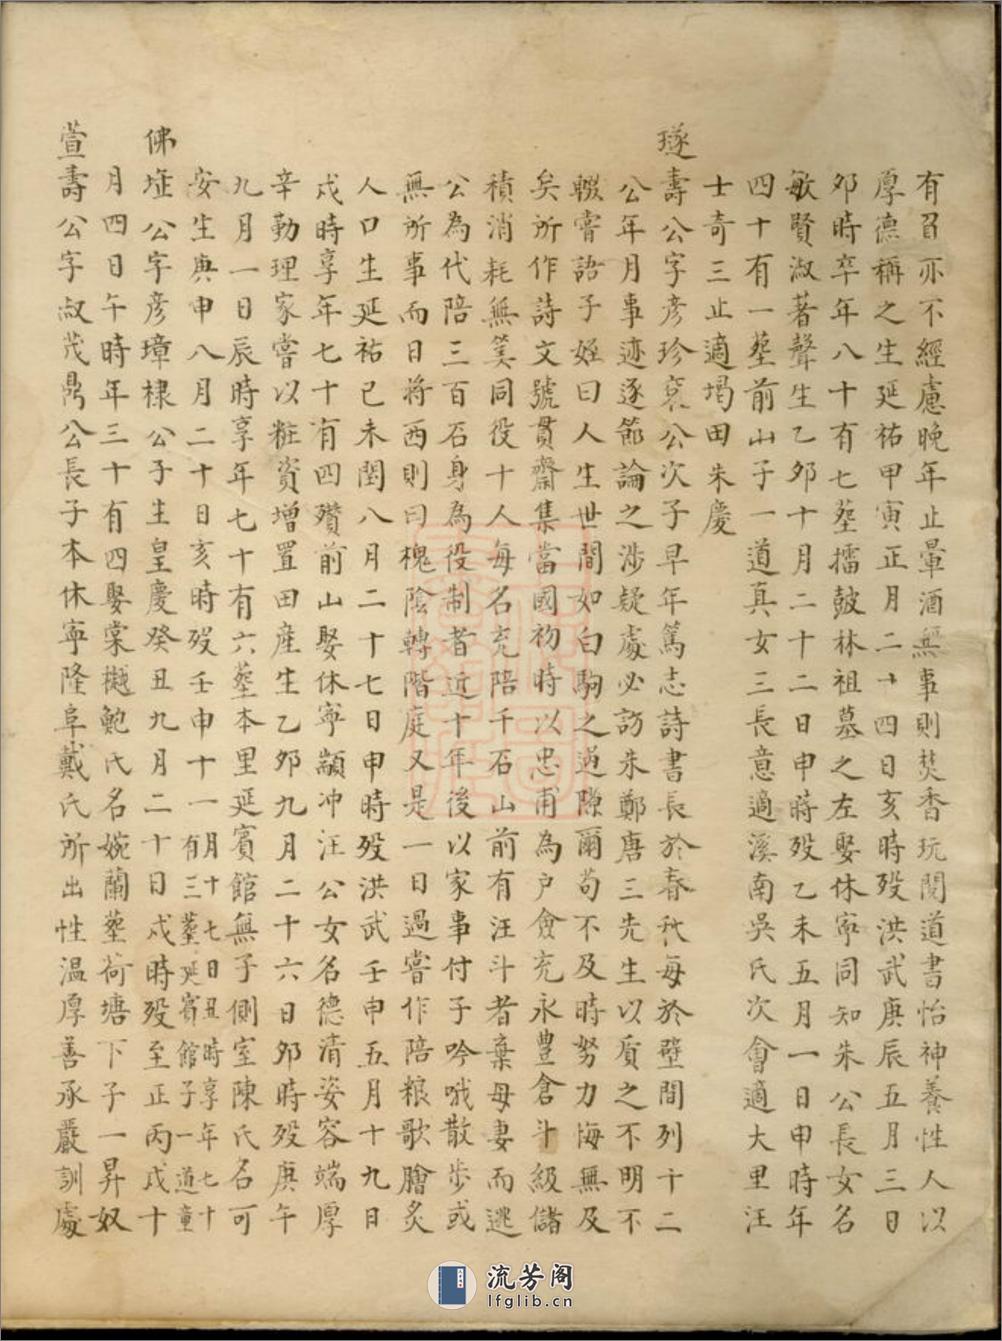 有召亦不經慮晚年止葷酒無事則焚香玩閱道書怡神養性人以
厚德稱之生延祐甲寅正月二十四日亥時歿洪武庚辰五月三日
夘時卒年八十有七塟擂鼓林祖墓之左娶休寧同知朱公長女名
敏賢淑著聲生乙夘十月二十二日申時歿乙未五月一日申時年
四十有一塟前山子一道真女三長意適溪南吳氏次會適大里汪
士奇三止適堨田朱慶
璲壽公字彥珍袞公次子早年篤志詩書長於春秋每於壁間列十二
公年月事迹逐節論之涉疑處必訪朱鄭唐三先生以質之不明不
輟嘗語子姪曰人生世間如白駒之過隙爾苟不及時努力悔無及
矣所作詩文號貫齋集當國初時以忠甫為户僉充永豊倉斗級儲
積消耗無筭同役十人每名充陪千石山前有汪斗者棄母妻而逃
公為代陪三百石身為役制者近十年後以家事付子吟哦散步或
無所事而日將西則曰槐陰轉階庭又是一日過嘗作陪粮歌膾炙
人口生延祐己未閏八月二十七日申時歿洪武壬申五月十九日
戌時享年七十有四殯前山娶休寧顓冲汪公女名德清姿容端厚
辛勤理家嘗以粧資增置田産生乙夘九月二十六日夘時歿庚午
九月一日辰時享年七十有六塟本里延賓館無子側室陳氏名可
安生庚申八月二十日亥時歿壬申十一月十七日丑時享年七十有三塟延賓館子一道童
佛㘹公字彥璋棣公子生皇慶癸丑九月二十日戌時歿至正丙戌十
月四日午時年三十有四娶棠樾鮑氏名婉蘭塟荷塘下子一昇奴
萱壽公字淑茂鼎公長子本休寧隆阜戴氏所出性温厚善承嚴訓處
流芳阁
lfglib.cn